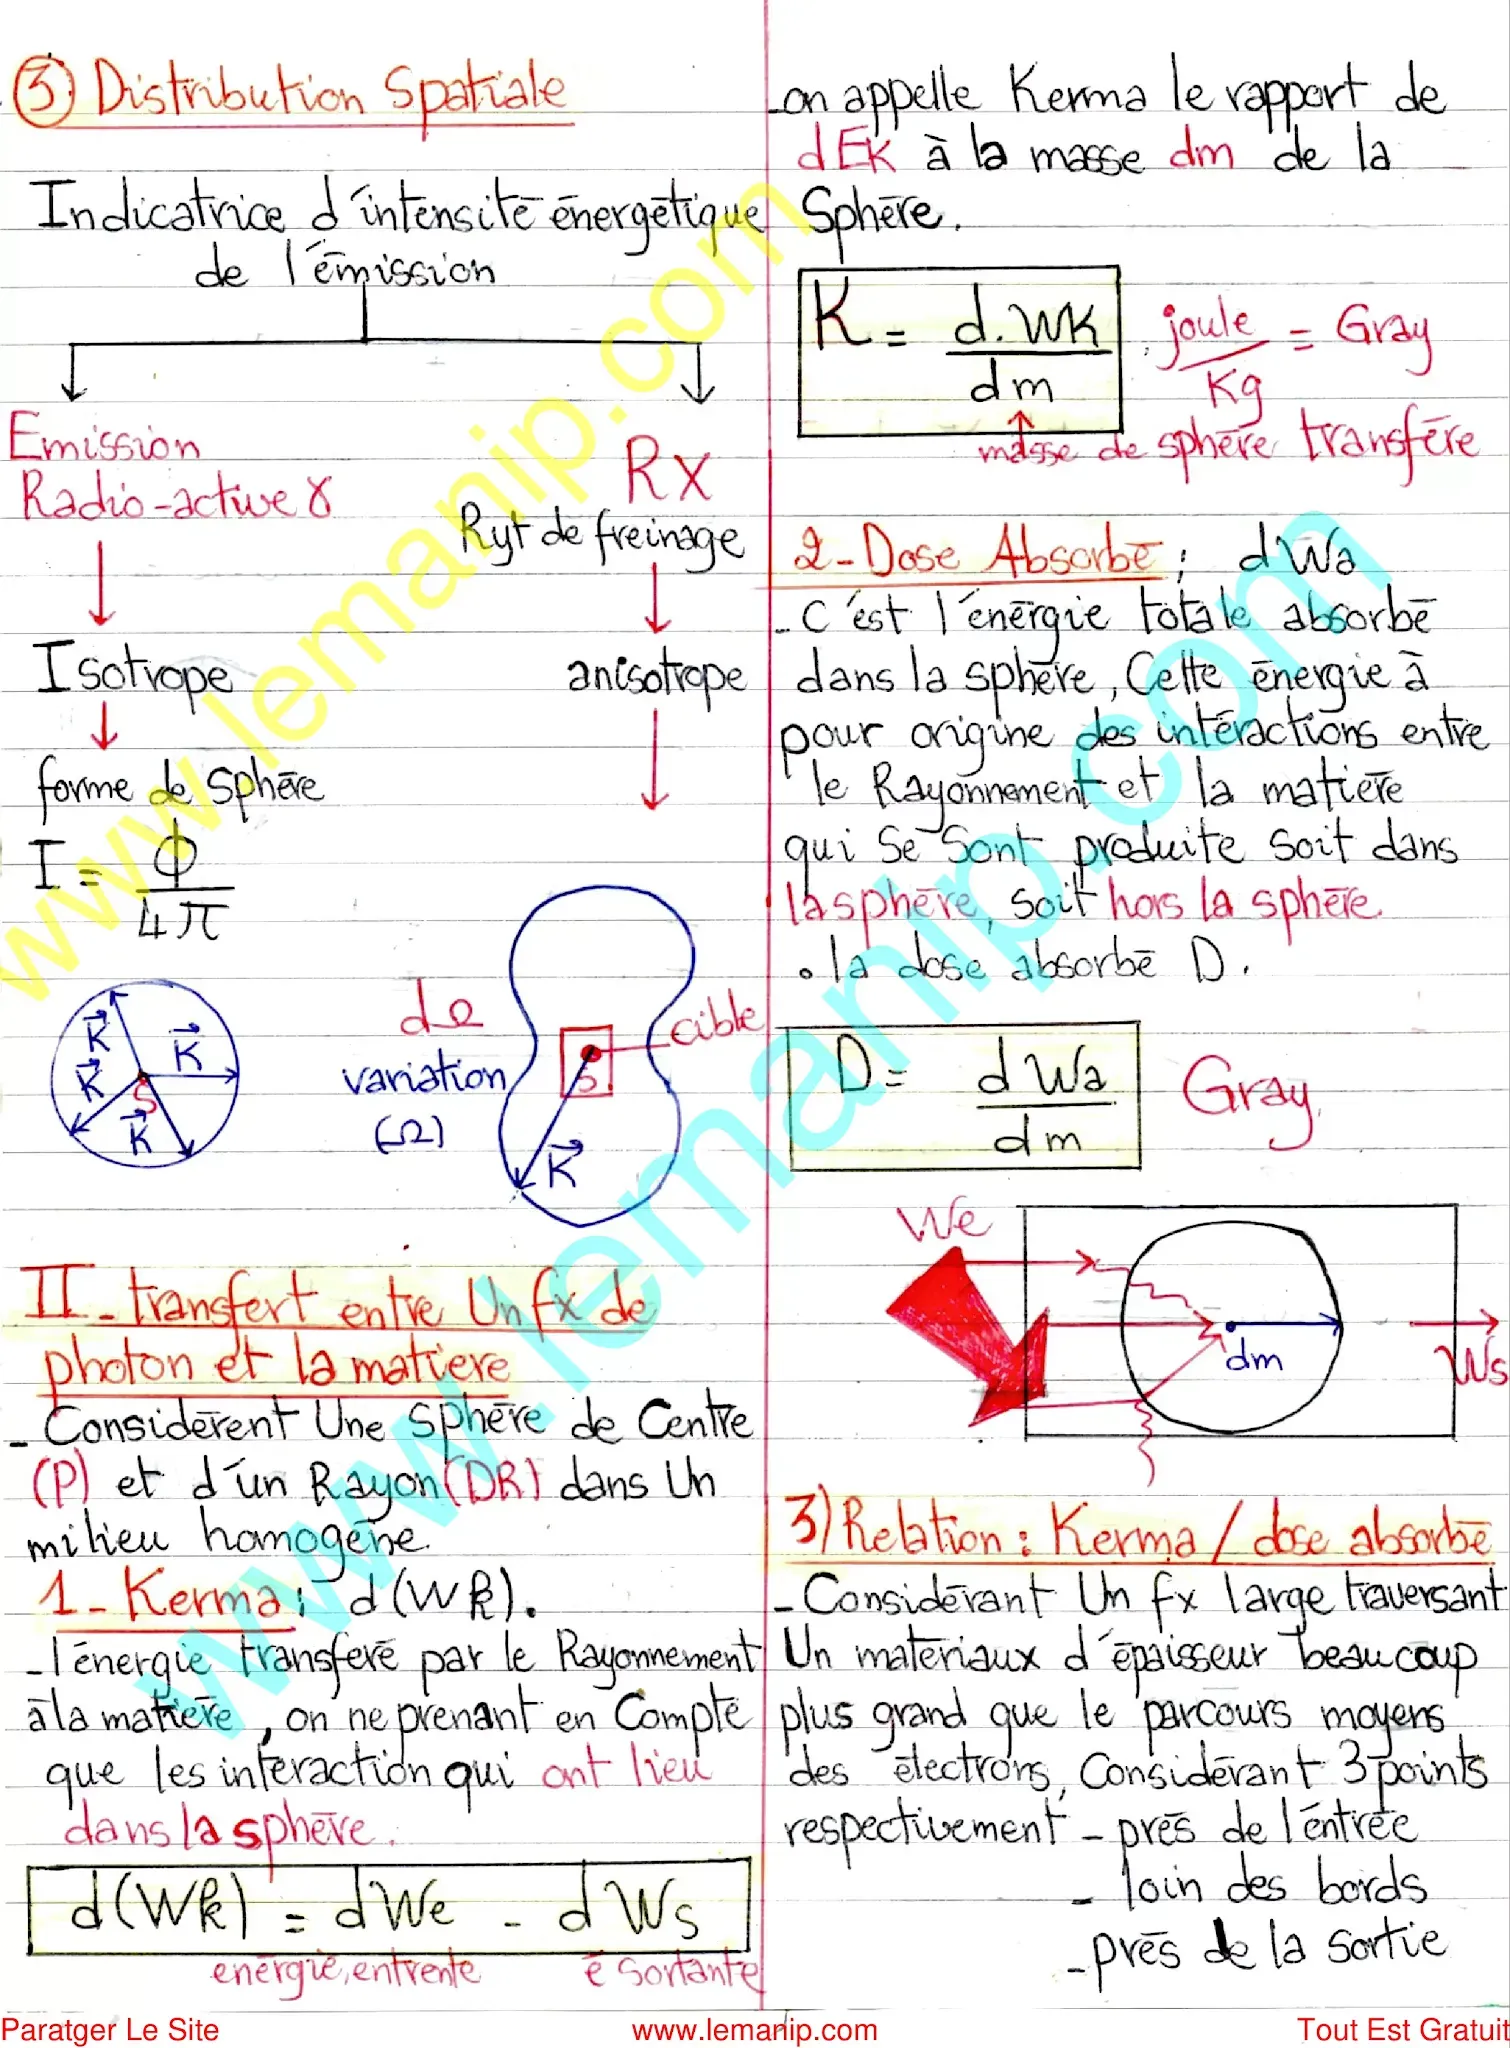 ③ Distribution Spatiale
Indicatrice d'intensité énergétique
de l'émission
Emission
Radio-active γ
RX
Ryt de freinage
Isotrope
anisotrope
forme de sphère
I = Φ / 4π
K⃗
K⃗
K⃗
K⃗
S
de
variation
(Ω)
cible
S
K⃗
II - transfert entre Un fx de
photon et la matiere
- Considèrent Une sphère de Centre
(P) et d'un Rayon (DR) dans Un
milieu homogène.
1 - Kerma : d(Wk).
- l'énergie transferé par le Rayonnement
à la matière, on ne prenant en Compte
que les interaction qui ont lieu
dans la sphère.
d(Wk) = dWe - dWs
energie, entrente é Sortante
- on appelle Kerma le rapport de
dEK à la masse dm de la
Sphère.
K = d.WK / dm , joule / Kg = Gray
masse de sphère transfère
2 - Dose Absorbé : dWa
- C'est l'énérgie totale absorbé
dans la sphère, Cette énergie à
pour origine des intéractions entre
le Rayonnement et la matière
qui Se Sont produite soit dans
la sphère, soit hors la sphère.
• la dose absorbé D.
D = dWa / dm Gray
We
dm
Ws
3) Relation : Kerma / dose absorbé
- Considérant Un fx large traversant
Un matériaux d'épaisseur beaucoup
plus grand que le parcours moyens
des électrons, Considérant 3 points
respectivement - prés de l'éntrée
- loin des bords
- prés de la sortie
www.lemanip.com
www.lemanip.com
Paratger Le Site www.lemanip.com Tout Est Gratuit